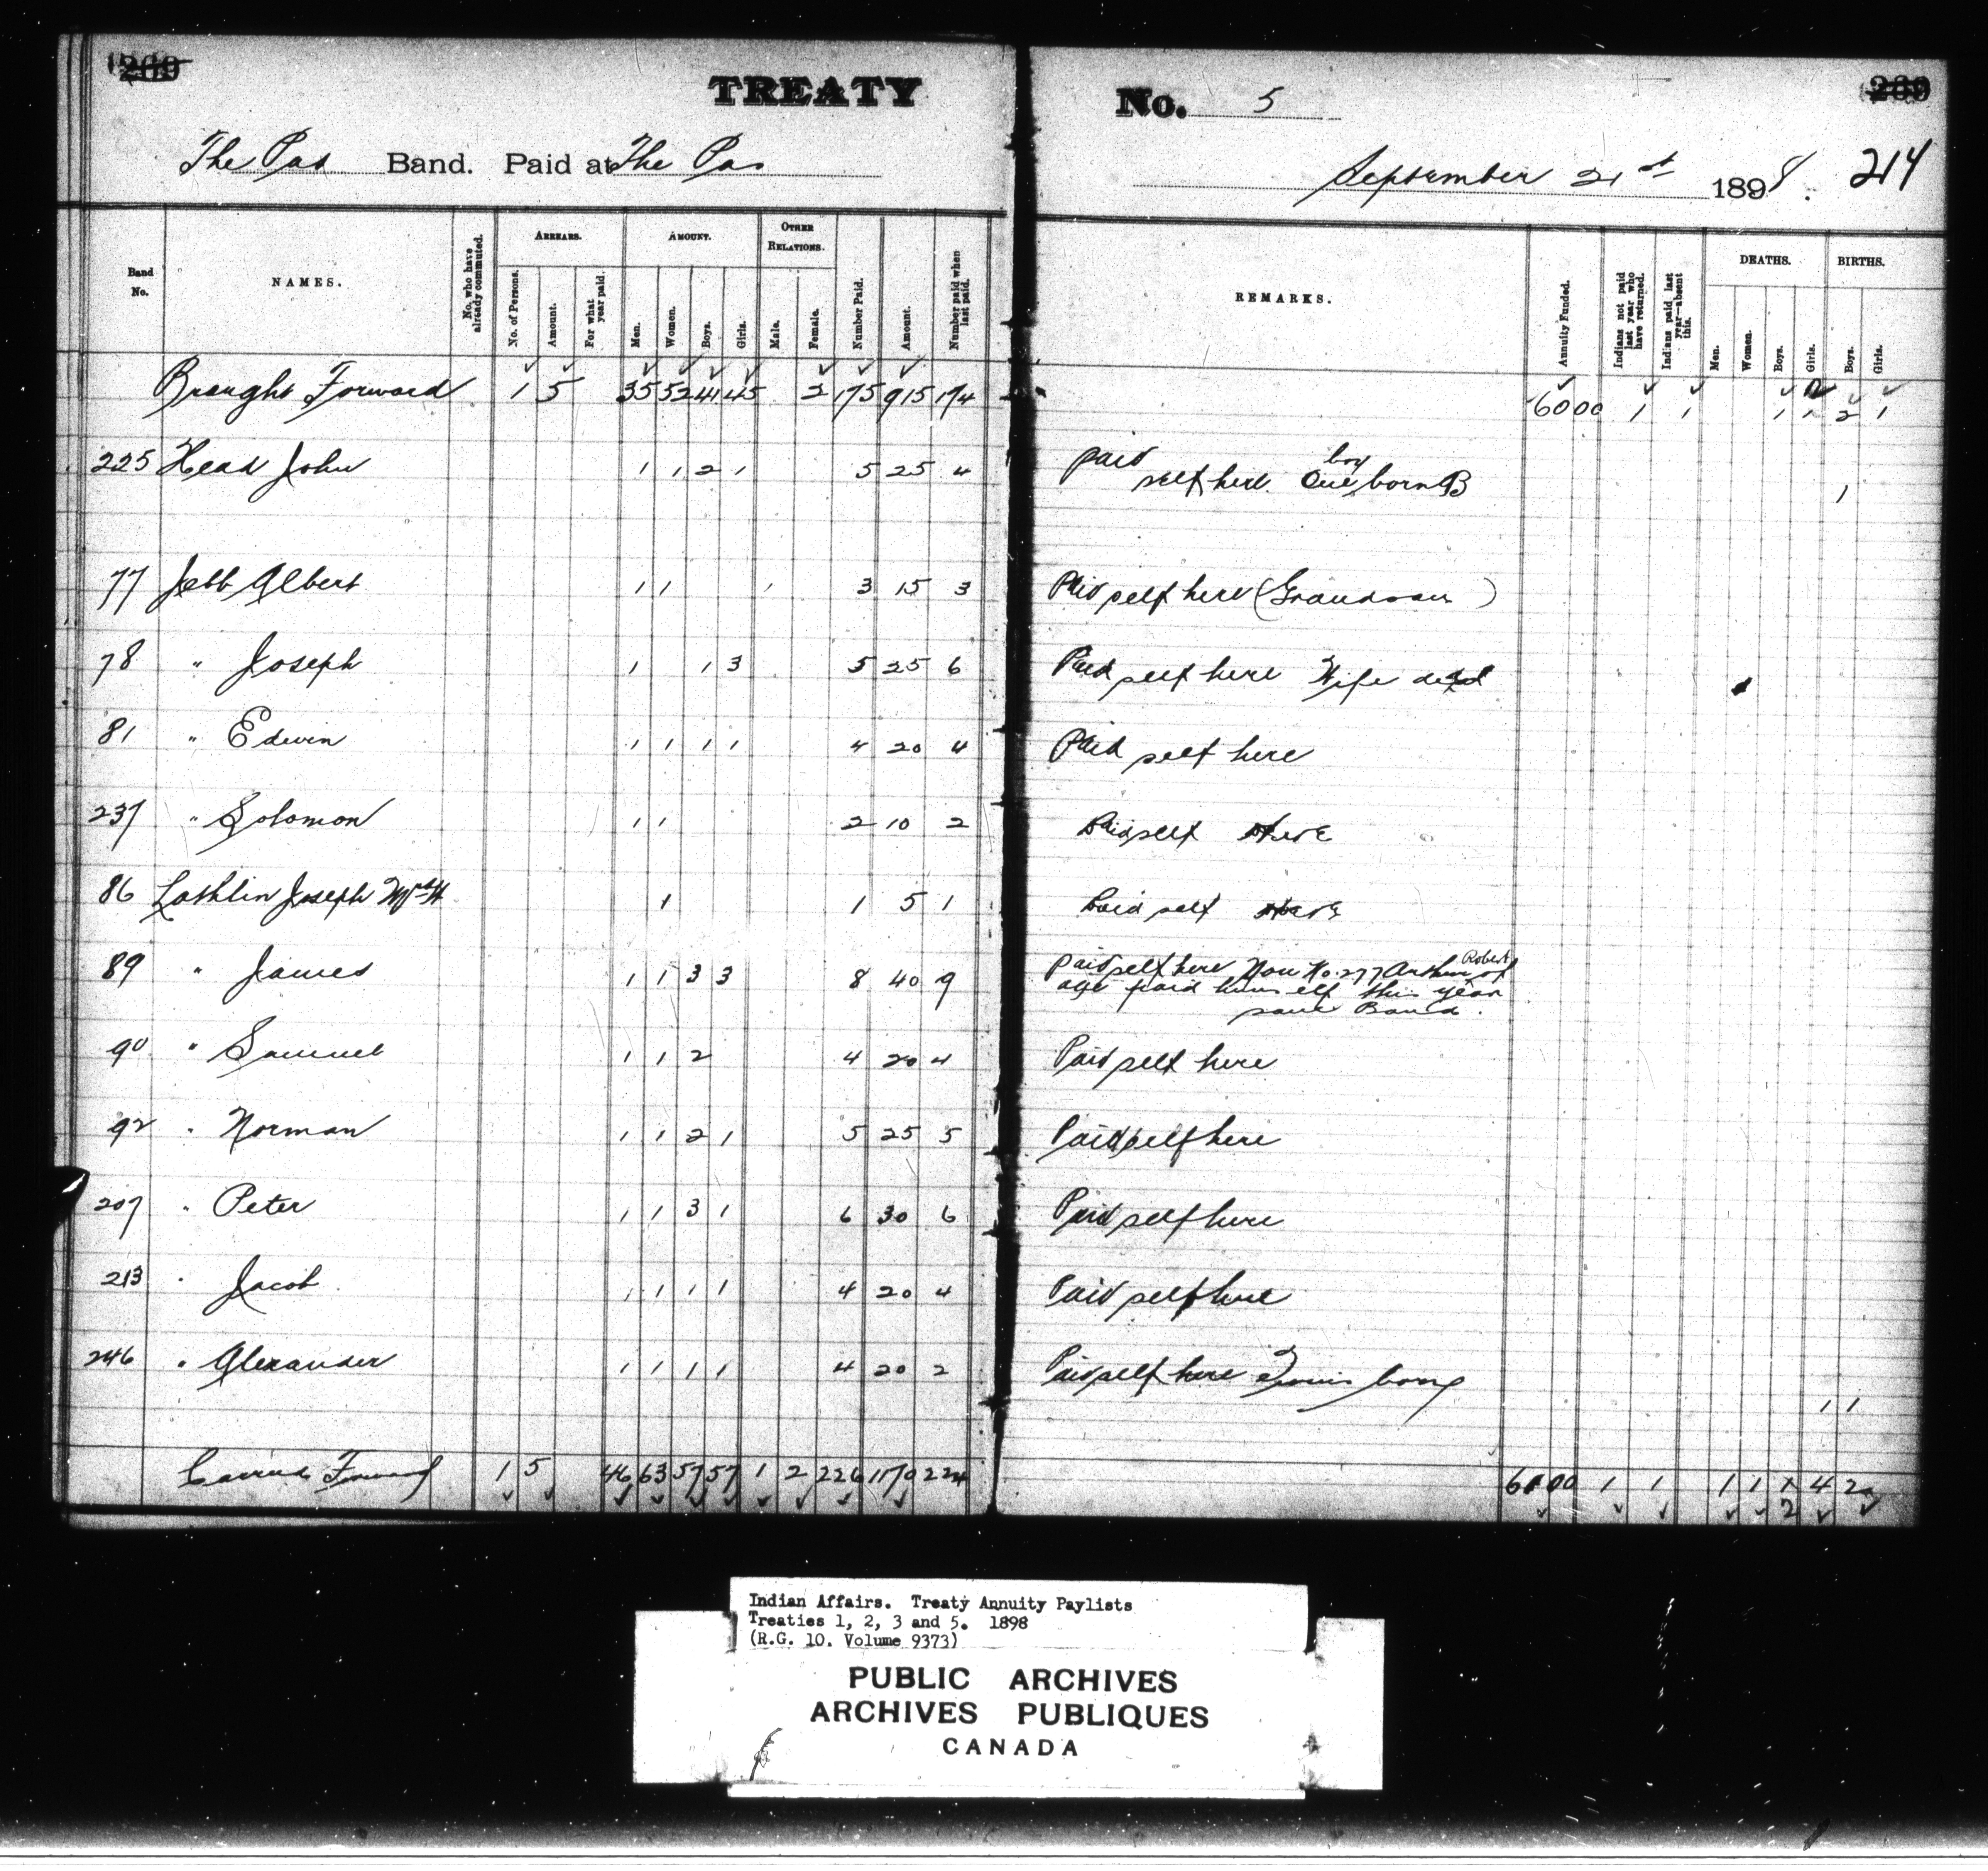 209
TREATY
No. 5
209
The Pas Band. Paid at The Pas
September 21st 1898. 214
Band No.
NAMES.
No. who have already commuted.
ARREARS.
No. of Persons.
Amount.
For what year paid.
AMOUNT.
Men.
Women.
Boys.
Girls.
OTHER RELATIONS.
Male.
Female.
Number Paid.
Amount.
Number paid when last paid.
REMARKS.
Annuity Funded.
Indians not paid last year who have returned.
Indians paid last year—absent this.
DEATHS.
Men.
Women.
Boys.
Girls.
BIRTHS.
Boys.
Girls.
Brought Forward 1 5 35 52 41 45 2 175 915 174 60 00 1 1 1 1 2 1
225 Head John 1 1 2 1 5 25 4 paid self here. One boy born B 1
77 Jebb Albert 1 1 1 3 15 3 Paid self here (Grandson)
78 " Joseph 1 1 3 5 25 6 Paid self here Wife dead
81 " Edwin 1 1 1 1 4 20 4 Paid self here
237 " Solomon 1 1 2 10 2 Paid self here
86 Lathlin Joseph 1 1 5 1 Paid self here
89 " James 1 1 3 3 8 40 9 paid self here Son No. 277 Arthur Robert of
age paid himself this year
same Band.
90 " Samuel 1 1 2 4 20 4 Paid self here
92 " Norman 1 1 2 1 5 25 5 Paid self here
207 " Peter 1 1 3 1 6 30 6 Paid self here
213 " Jacob 1 1 1 1 4 20 4 Paid self here
246 " Alexander 1 1 1 1 4 20 2 Paid self here Twins born 1 1
Carried Forward 1 5 46 63 57 57 1 2 226 1170 224 60 00 1 1 1 1 1 4 2
2
Indian Affairs. Treaty Annuity Paylists
Treaties 1, 2, 3 and 5. 1898
(R.G. 10. Volume 9373)
PUBLIC ARCHIVES
ARCHIVES PUBLIQUES
CANADA